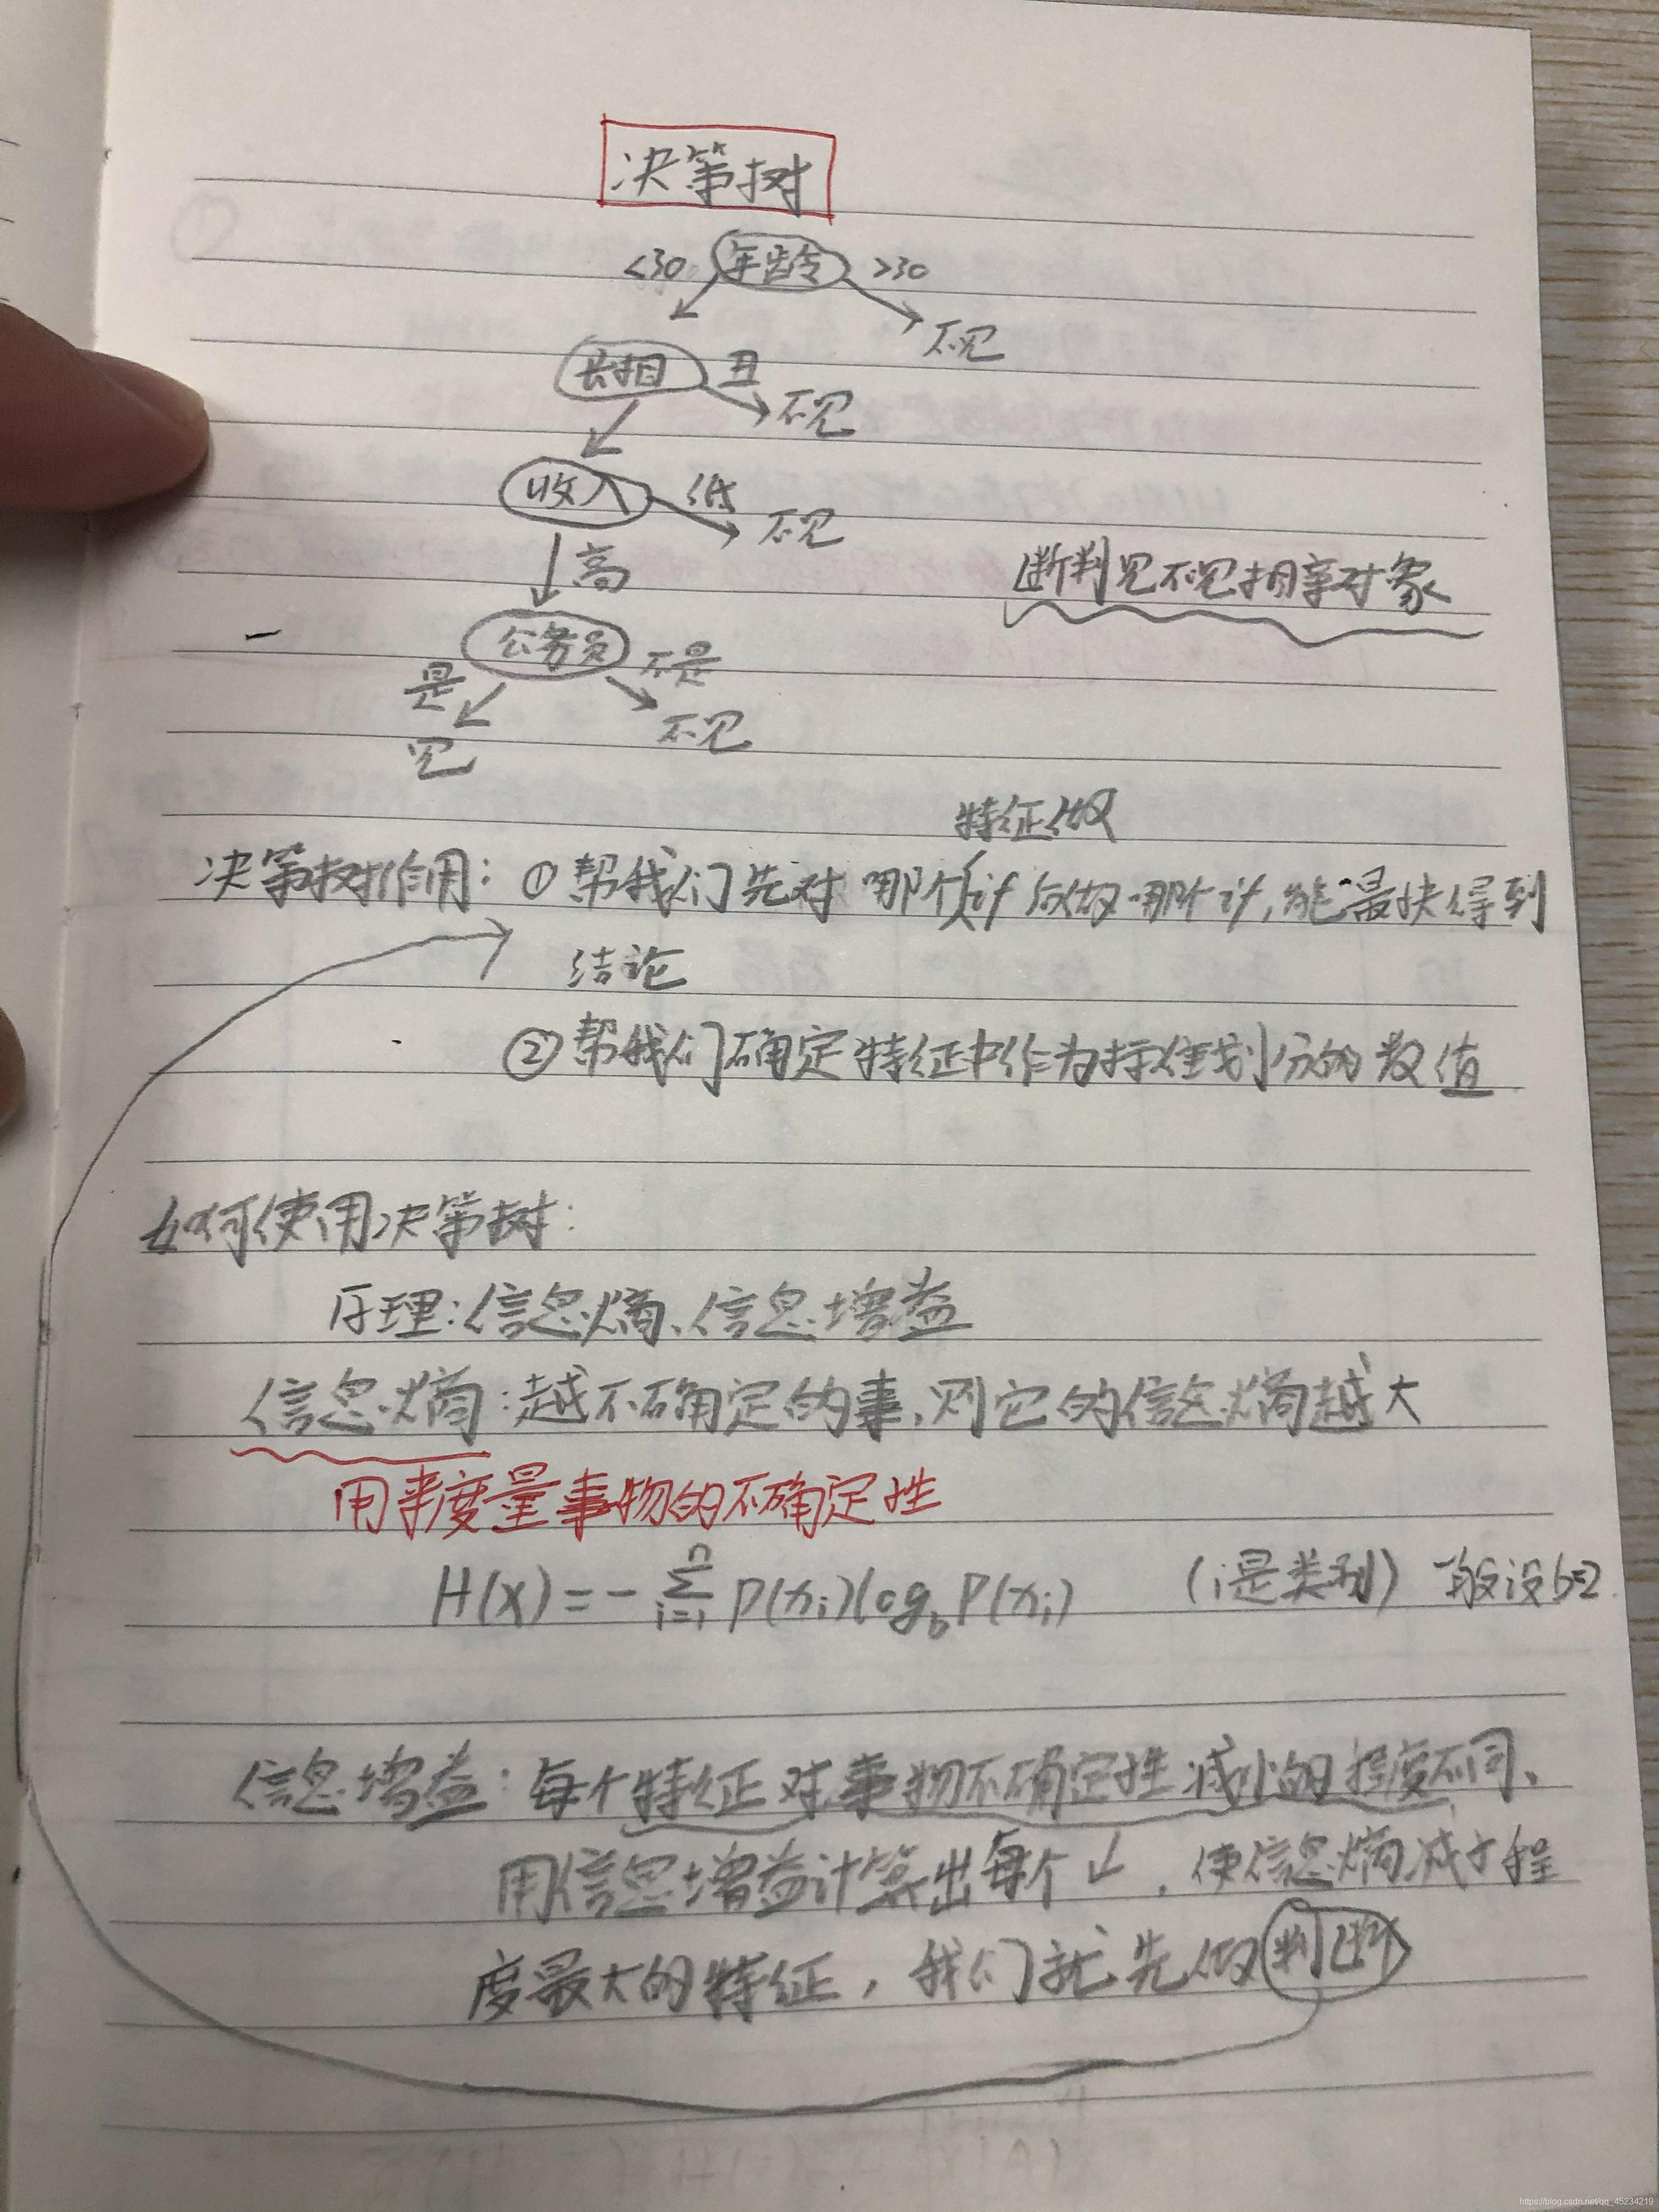 决策树
<30 年龄 >30
不见
长相 丑
不见
收入 低
不见
高
断判见不见相亲对象
公务员
是 不是
见 不见
特征做
决策树作用：①帮我们先对哪个if 后做哪个if，能最快得到
结论
②帮我们确定特征中作为标准划分的数值
如何使用决策树：
原理：信息熵、信息增益
信息熵：越不确定的事，则它的信息熵越大
用来度量事物的不确定性
H(X)=-∑ⁿᵢ₌₁ P(xᵢ)log_b P(xᵢ) (i是类别) 一般设b=2
信息增益：每个特征对事物不确定性减小的程度不同、
用信息增益计算出每个↙，使信息熵减小程
度最大的特征，我们就先做判断
https://blog.csdn.net/qq_45234219